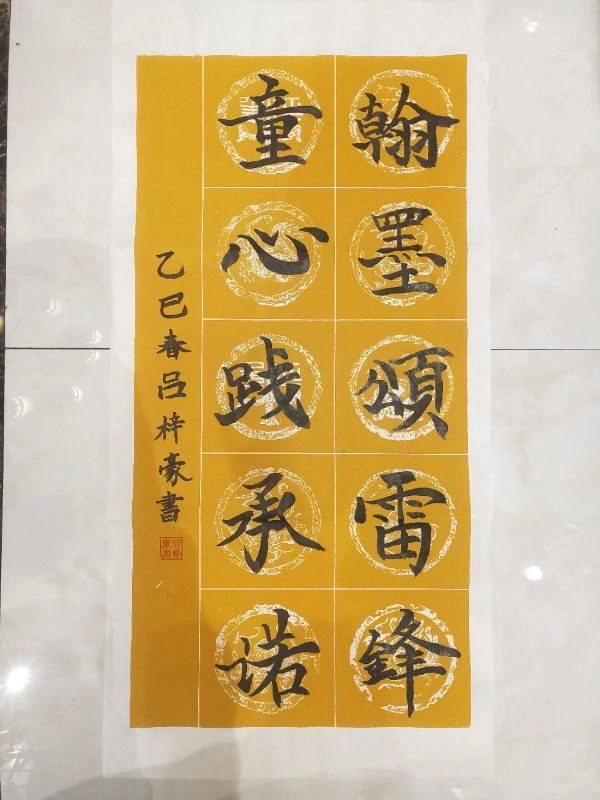 翰墨頌雷鋒
童心践承诺
乙巳春吕梓豪書